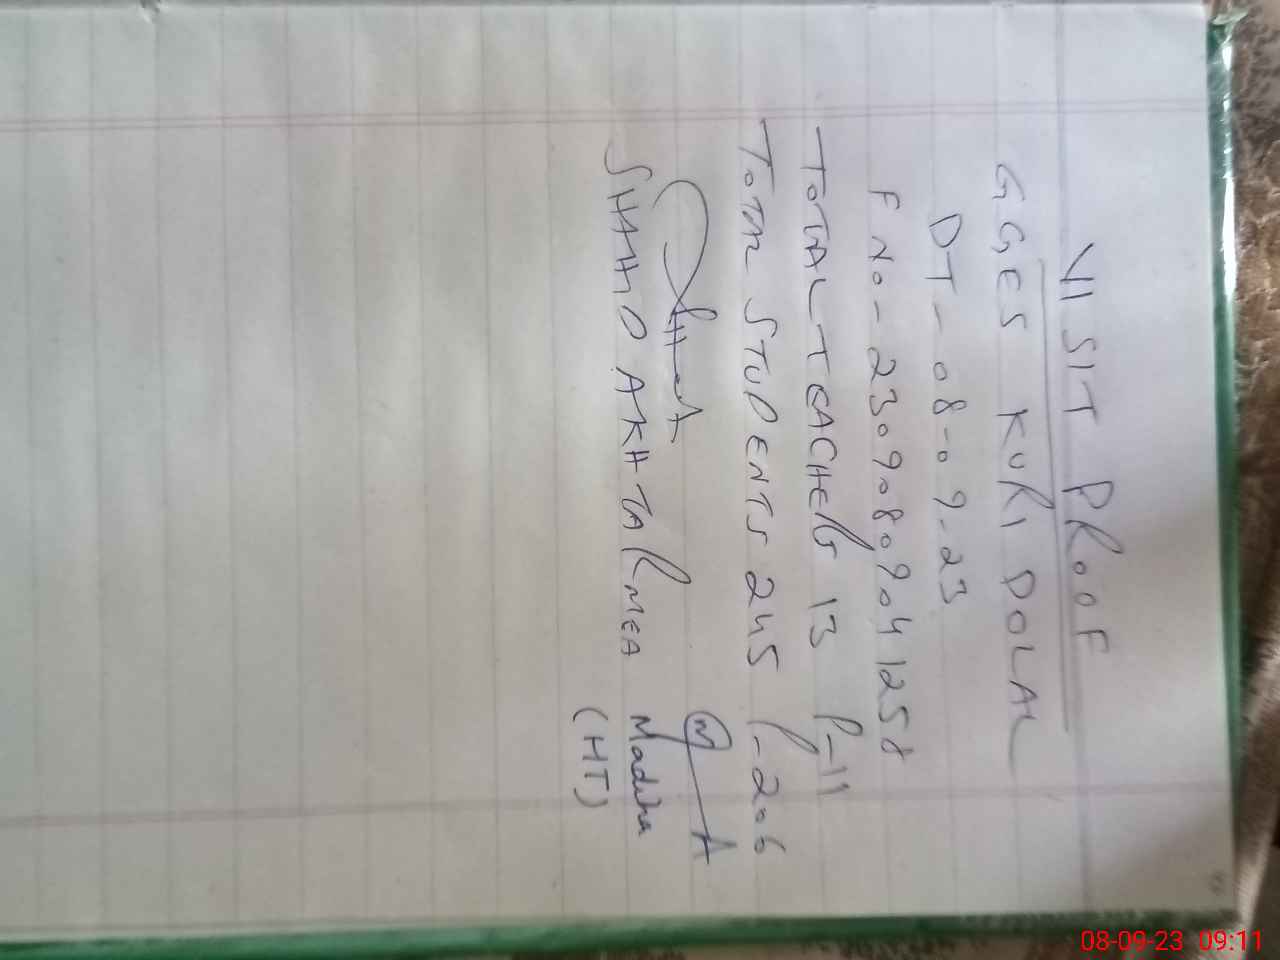 VISIT PROOF
GGES KURI DOLAL
DT - 08-09-23
F No - 23090809041258
TOTAL TEACHERS 13 P-11
TOTAL STUDENTS 245 P-206
SHAHID AKHTAR MEA Madiha
(HT)
08-09-23 09:11